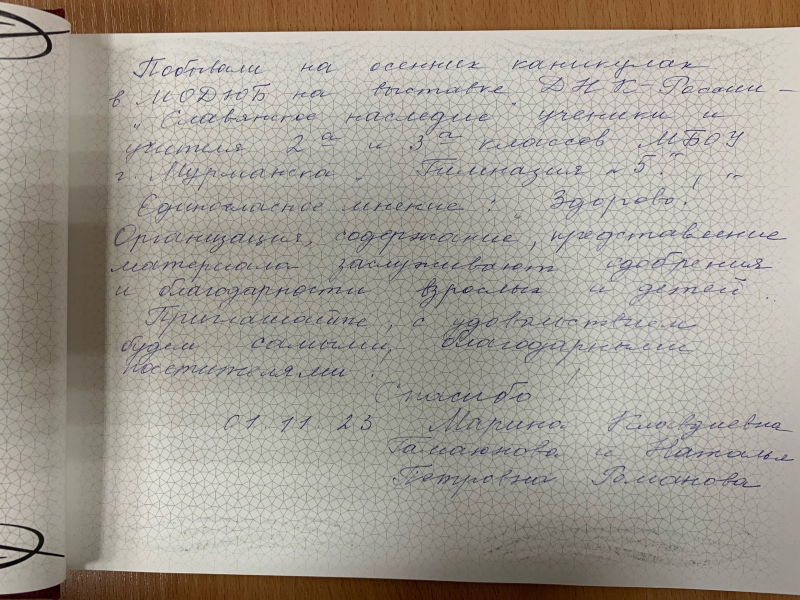 Побывали на осенних каникулах
в МОДЮБ на выставке ДНК-России –
"Славянское наследие" ученики и
учителя 2а и 3а классов МБОУ
г. Мурманска "Гимназия №5".
Единогласное мнение: "Здорово!"
Организация, содержание, представление
материала заслуживают одобрения
и благодарности взрослых и детей.
Приглашайте, с удовольствием
будем самыми благодарными
посетителями.
Спасибо
01.11.23 Марина Клавдиевна
и Наталья
Петровна Романова